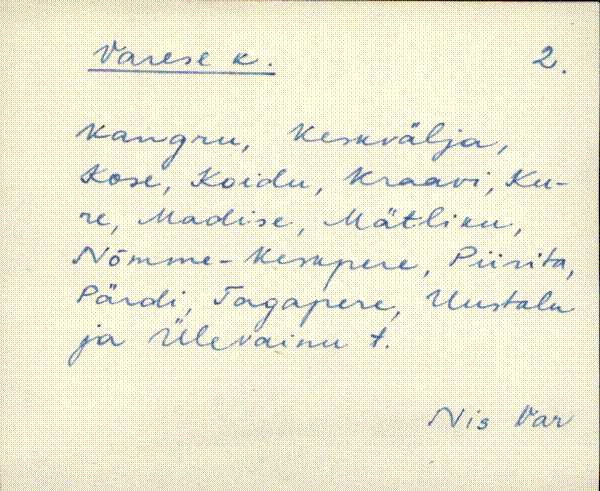 Varese k. 2.
Kangru, Keskvälja,
Kose, Koidu, Kraavi, Ku-
re, Madise, Mätliku,
Nõmme-Keskpere, Piirita,
Pärdi, Tagapere, Uustalu
ja Ülevainu t.
Nis Var